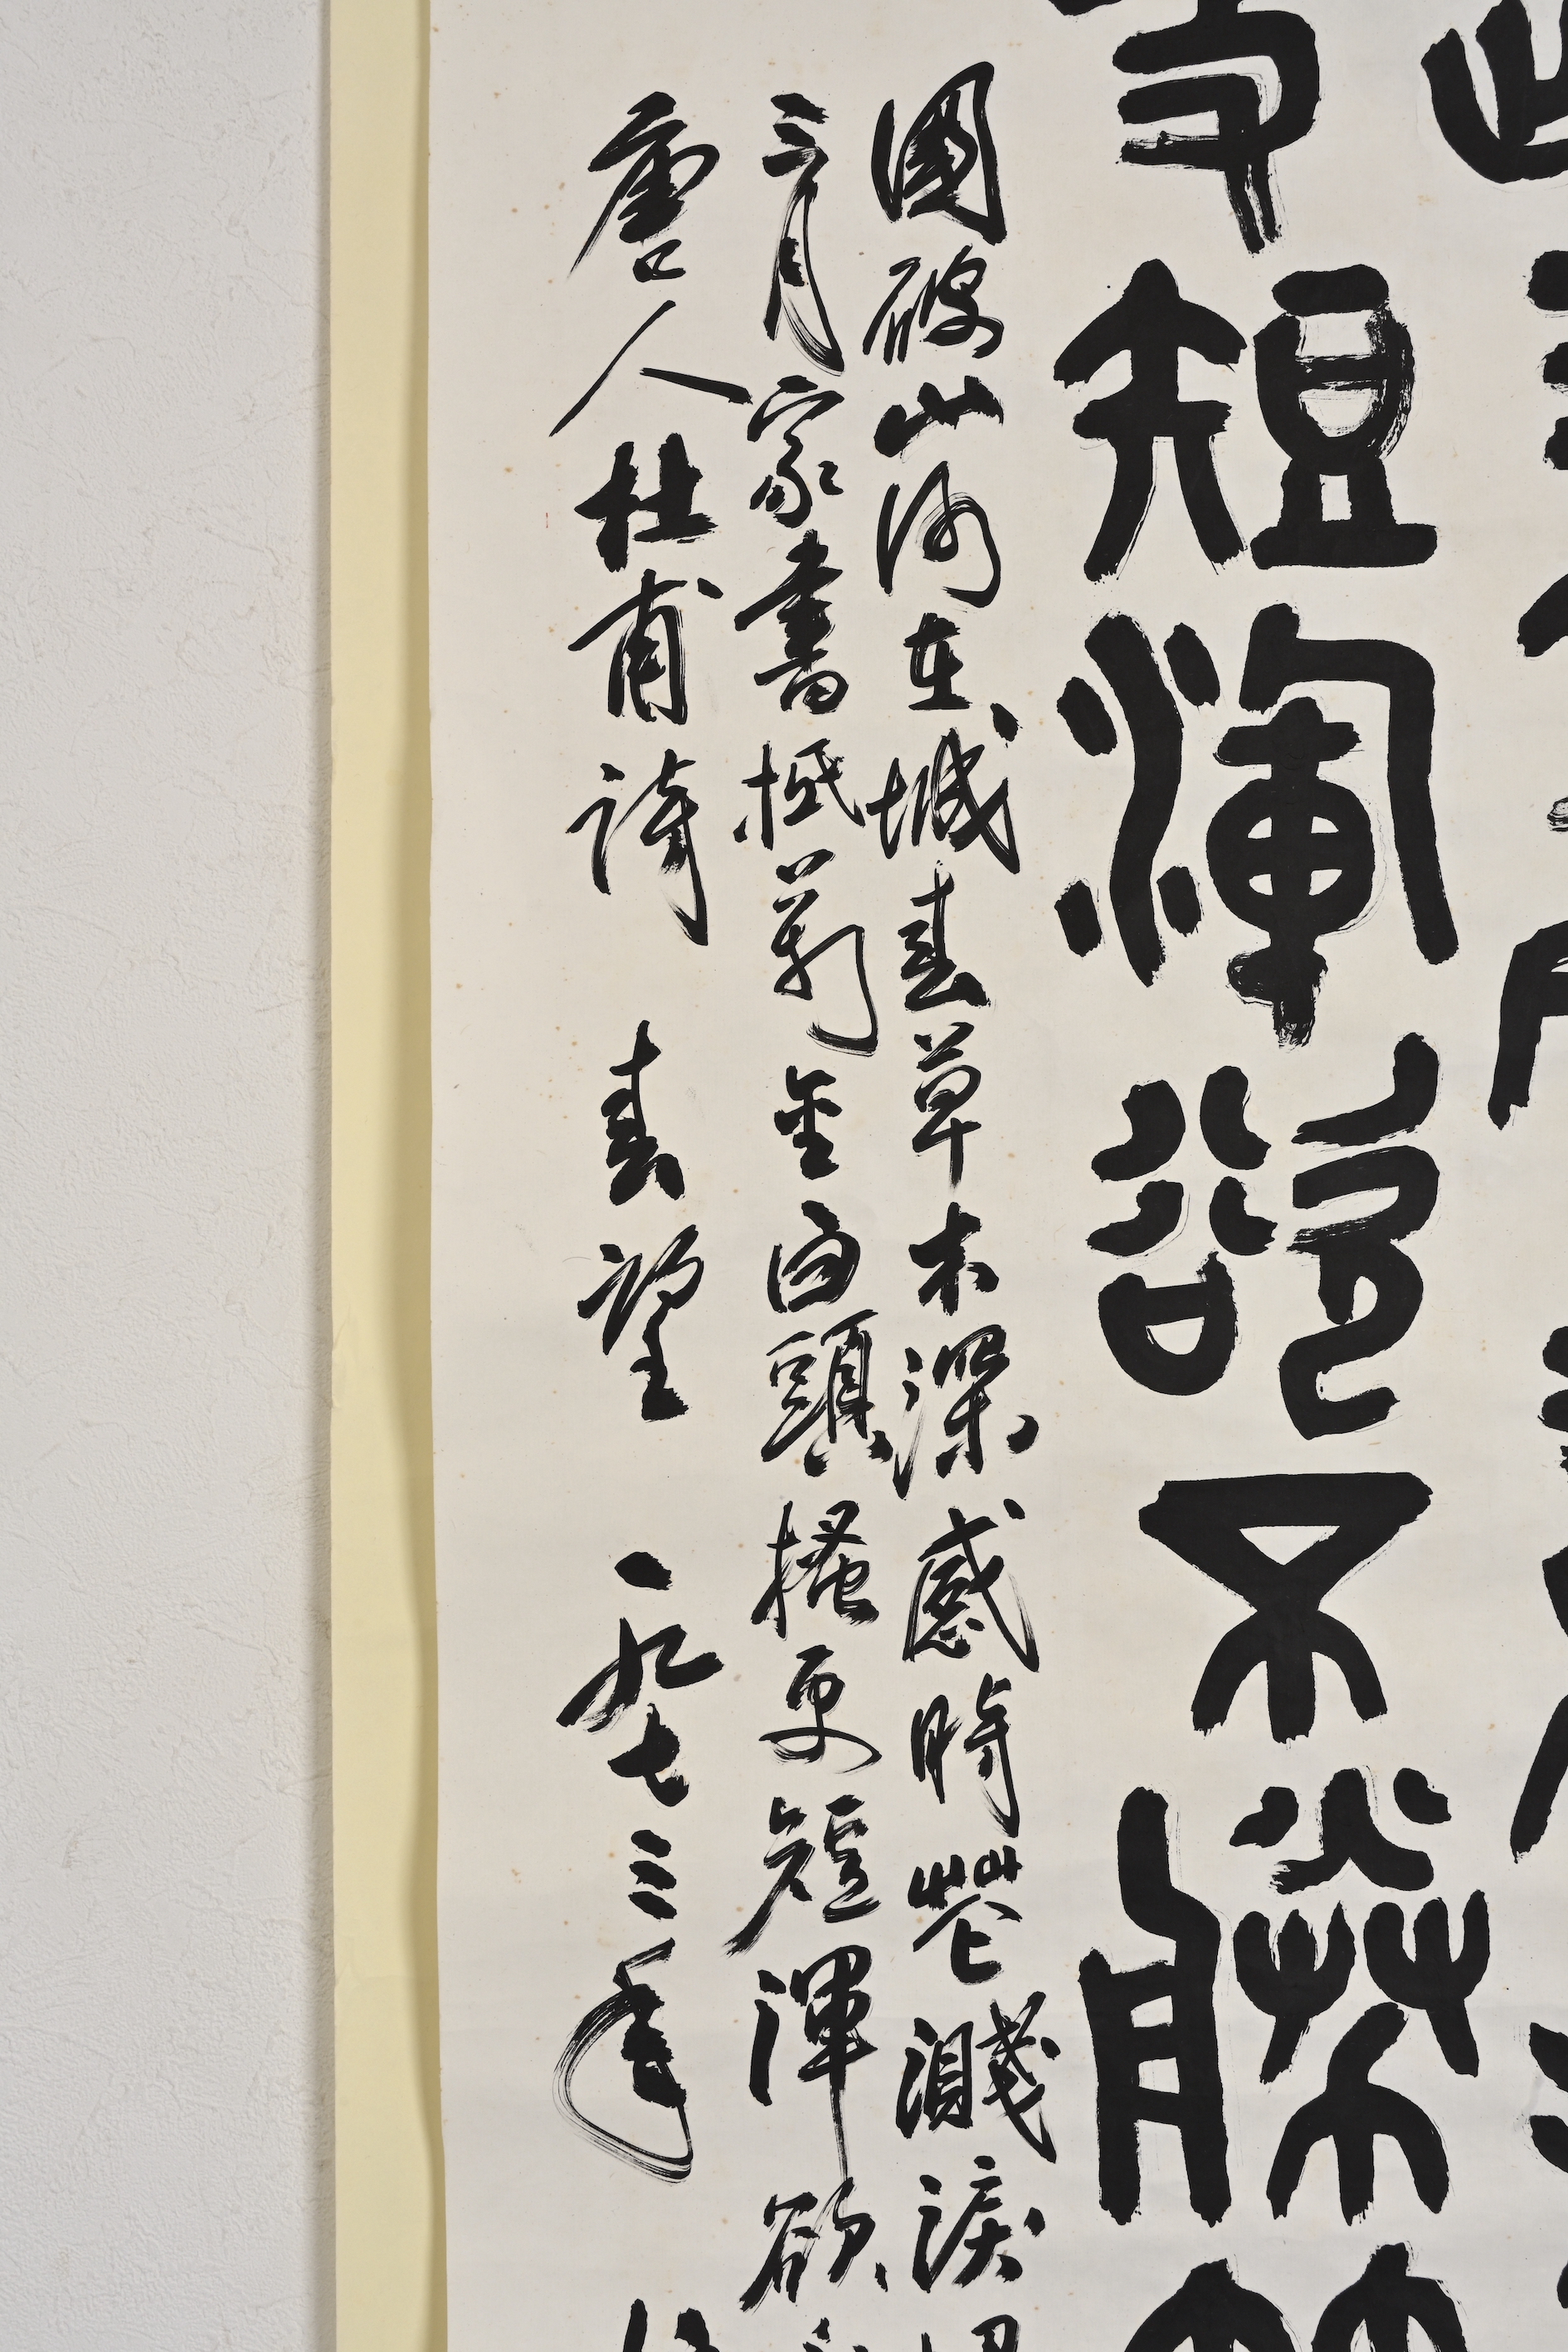 短渾欲不勝
國破山河在城春草木深感時花濺淚
三月家書抵萬金白頭搔更短渾欲
唐人杜甫詩 春望 一九七三年